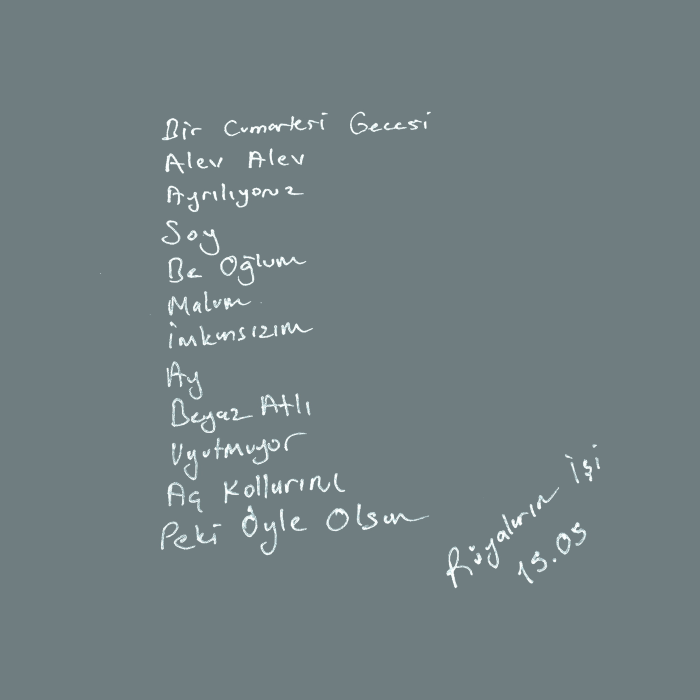 Bir Cumartesi Gecesi
Alev Alev
Ayrılıyoruz
Soy
Be Oğlum
Malum
İmkansızım
Ay
Beyaz Atlı
Uyutmuyor
Aç Kollarını
Peki Öyle Olsun
Rüyaların İşi
15.05